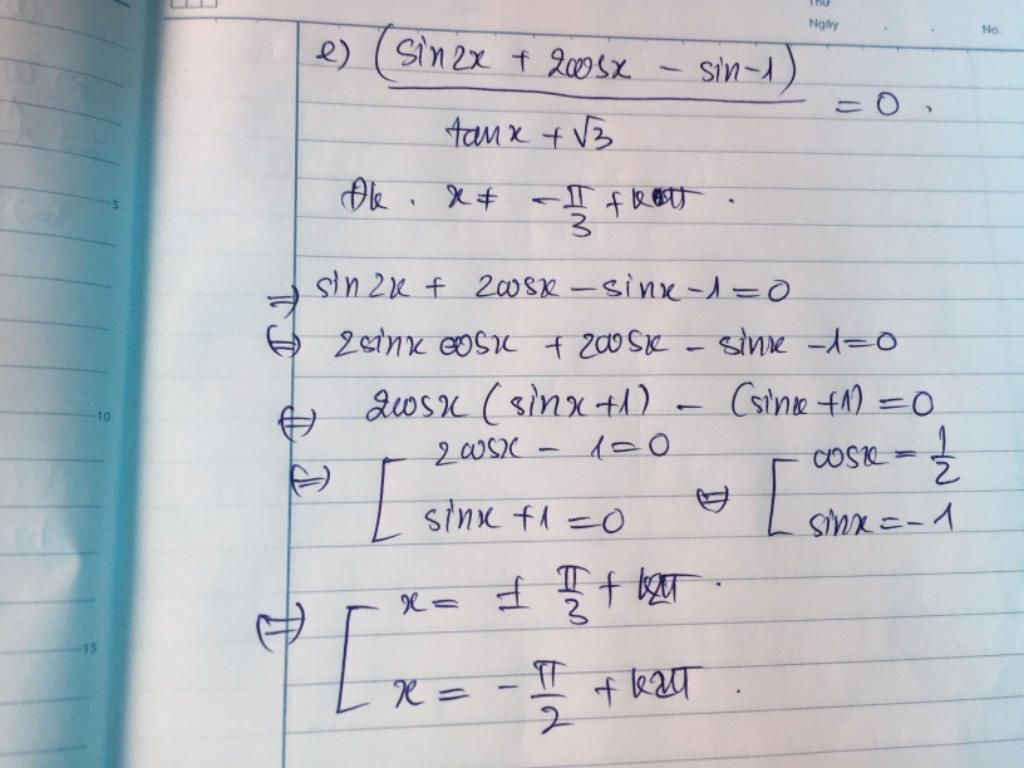 Thứ
Ngày
No.
e) (sin2x + 2cosx - sin-1)
= 0 .
tanx + √3
Đk . x ≠ -π/3 + kπ .
5
⇒ sin2x + 2cosx - sinx - 1 = 0
⇔ 2sinx cosx + 2cosx - sinx - 1 = 0
10
⇔ 2cosx (sinx + 1) - (sinx + 1) = 0
⇔ [ 2cosx - 1 = 0 ⇔ [ cosx = 1/2
sinx + 1 = 0 sinx = -1
⇔ [ x = ± π/3 + k2π .
15
x = -π/2 + k2π .